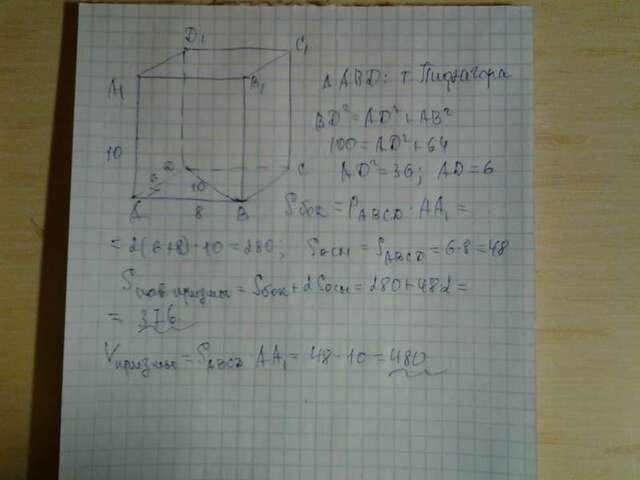 D₁
C₁
A₁
B₁
10
D
C
6
10
A
8
B
Δ ABD: т. Пифагора
BD² = AD² + AB²
100 = AD² + 64
AD² = 36; AD = 6
Sбок = P_ABCD · AA₁ =
= 2(6+8)·10 = 280; Sосн = S_ABCD = 6·8 = 48
Sпов призмы = Sбок + 2Sосн = 280 + 48·2 =
= 376
Vпризмы = S_ABCD · AA₁ = 48 · 10 = 480